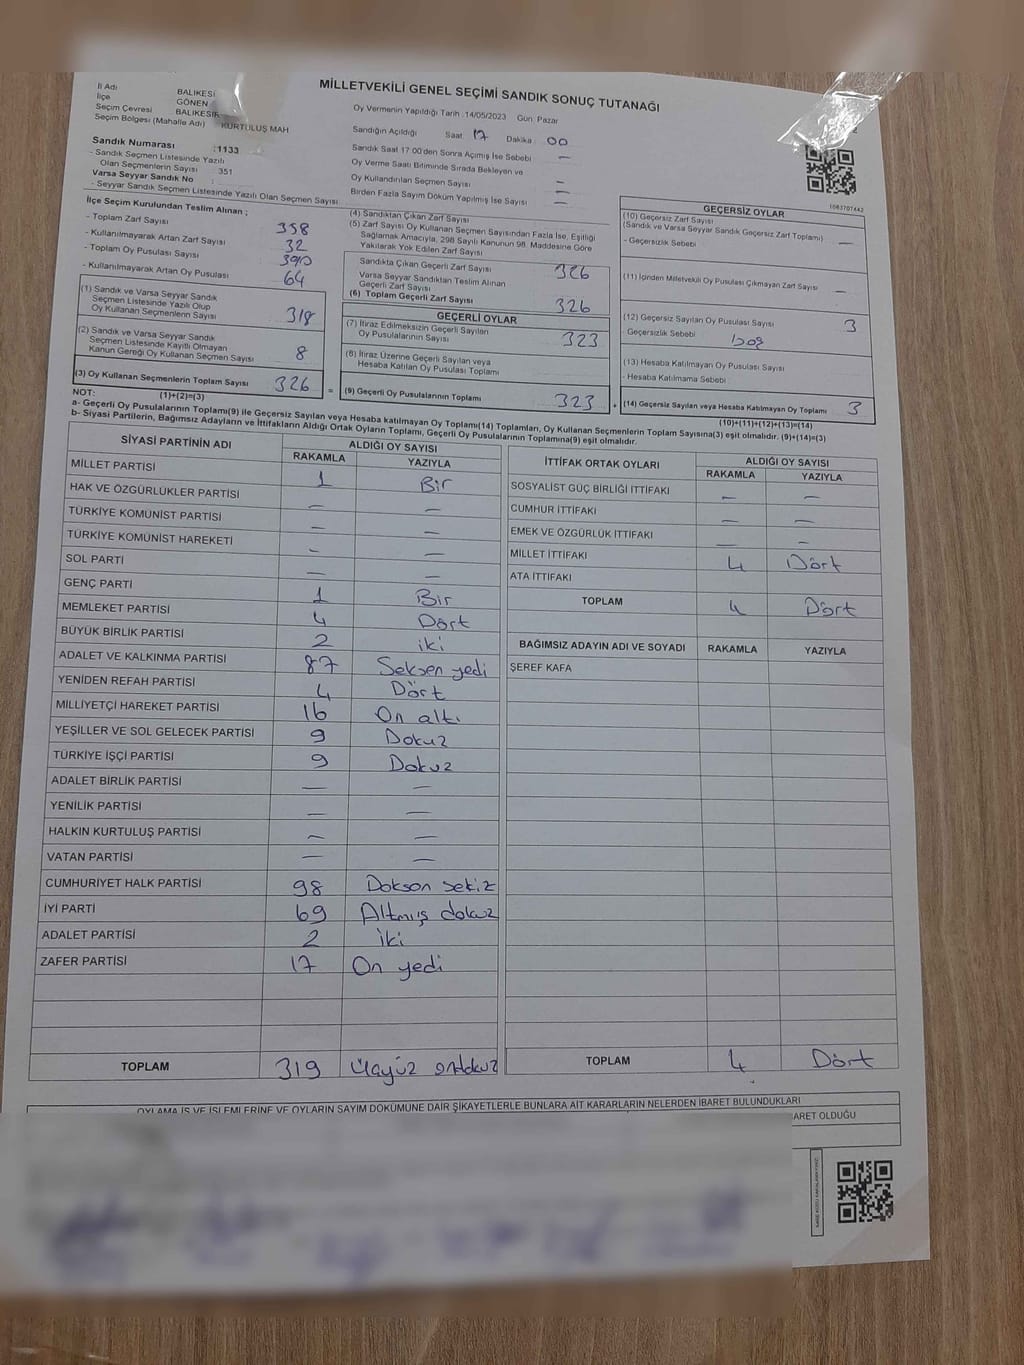 MİLLETVEKİLİ GENEL SEÇİMİ SANDIK SONUÇ TUTANAĞI
İl Adı BALIKESİ
İlçe GÖNEN
Seçim Çevresi BALIKESİR
Seçim Bölgesi (Mahalle Adı) KURTULUŞ MAH
Sandık Numarası :1133
- Sandık Seçmen Listesinde Yazılı
Olan Seçmenlerin Sayısı : 351
Varsa Seyyar Sandık No :
- Seyyar Sandık Seçmen Listesinde Yazılı Olan Seçmen Sayısı
Oy Vermenin Yapıldığı Tarih :14/05/2023 Gün: Pazar
Sandığın Açıldığı Saat 17 Dakika 00
Sandık Saat 17:00'den Sonra Açımış İse Sebebi —
Oy Verme Saati Bitiminde Sırada Bekleyen ve
Oy Kullandırılan Seçmen Sayısı —
Birden Fazla Sayım Döküm Yapılmış İse Sayısı —
1083707442
İlçe Seçim Kurulundan Teslim Alınan ;
- Toplam Zarf Sayısı 358
- Kullanılmayarak Artan Zarf Sayısı 32
- Toplam Oy Pusulası Sayısı 390
- Kullanılmayarak Artan Oy Pusulası 64
(1) Sandık ve Varsa Seyyar Sandık
Seçmen Listesinde Yazılı Olup
Oy Kullanan Seçmenlerin Sayısı 318
(2) Sandık ve Varsa Seyyar Sandık
Seçmen Listesinde Kayıtlı Olmayan
Kanun Gereği Oy Kullanan Seçmen Sayısı 8
(3) Oy Kullanan Seçmenlerin Toplam Sayısı 326 =
(1)+(2)=(3)
(4) Sandıktan Çıkan Zarf Sayısı
(5) Zarf Sayısı Oy Kullanan Seçmen Sayısından Fazla İse, Eşitliği
Sağlamak Amacıyla, 298 Sayılı Kanunun 98. Maddesine Göre
Yakılarak Yok Edilen Zarf Sayısı
Sandıkta Çıkan Geçerli Zarf Sayısı 326
Varsa Seyyar Sandıktan Teslim Alınan
Geçerli Zarf Sayısı
(6) Toplam Geçerli Zarf Sayısı 326
GEÇERLİ OYLAR
(7) İtiraz Edilmeksizin Geçerli Sayılan
Oy Pusulalarının Sayısı 323
(8) İtiraz Üzerine Geçerli Sayılan veya
Hesaba Katılan Oy Pusulası Toplamı
(9) Geçerli Oy Pusulalarının Toplamı 323 +
GEÇERSİZ OYLAR
(10) Geçersiz Zarf Sayısı
(Sandık ve Varsa Seyyar Sandık Geçersiz Zarf Toplamı) —
- Geçersizlik Sebebi
(11) İçinden Milletvekili Oy Pusulası Çıkmayan Zarf Sayısı —
(12) Geçersiz Sayılan Oy Pusulası Sayısı 3
- Geçersizlik Sebebi boş
(13) Hesaba Katılmayan Oy Pusulası Sayısı
- Hesaba Katılmama Sebebi
(14) Geçersiz Sayılan veya Hesaba Katılmayan Oy Toplamı 3
(10)+(11)+(12)+(13)=(14)
NOT:
a- Geçerli Oy Pusulalarının Toplamı(9) ile Geçersiz Sayılan veya Hesaba katılmayan Oy Toplamı(14) Toplamları, Oy Kullanan Seçmenlerin Toplam Sayısına(3) eşit olmalıdır. (9)+(14)=(3)
b- Siyasi Partilerin, Bağımsız Adayların ve İttifakların Aldığı Ortak Oyların Toplamı, Geçerli Oy Pusulalarının Toplamına(9) eşit olmalıdır.
SİYASİ PARTİNİN ADI ALDIĞI OY SAYISI
RAKAMLA YAZIYLA
MİLLET PARTİSİ 1 Bir
HAK VE ÖZGÜRLÜKLER PARTİSİ — —
TÜRKİYE KOMÜNİST PARTİSİ — —
TÜRKİYE KOMÜNİST HAREKETİ — —
SOL PARTİ — —
GENÇ PARTİ 1 Bir
MEMLEKET PARTİSİ 4 Dört
BÜYÜK BİRLİK PARTİSİ 2 iki
ADALET VE KALKINMA PARTİSİ 87 Seksen yedi
YENİDEN REFAH PARTİSİ 4 Dört
MİLLİYETÇİ HAREKET PARTİSİ 16 On altı
YEŞİLLER VE SOL GELECEK PARTİSİ 9 Dokuz
TÜRKİYE İŞÇİ PARTİSİ 9 Dokuz
ADALET BİRLİK PARTİSİ — —
YENİLİK PARTİSİ — —
HALKIN KURTULUŞ PARTİSİ — —
VATAN PARTİSİ — —
CUMHURİYET HALK PARTİSİ 98 Dokson sekiz
İYİ PARTİ 69 Altmış dokuz
ADALET PARTİSİ 2 İki
ZAFER PARTİSİ 17 On yedi
TOPLAM 319 Üçyüz ondokuz
İTTİFAK ORTAK OYLARI ALDIĞI OY SAYISI
RAKAMLA YAZIYLA
SOSYALİST GÜÇ BİRLİĞİ İTTİFAKI — —
CUMHUR İTTİFAKI — —
EMEK VE ÖZGÜRLÜK İTTİFAKI — —
MİLLET İTTİFAKI 4 Dört
ATA İTTİFAKI
TOPLAM 4 Dört
BAĞIMSIZ ADAYIN ADI VE SOYADI RAKAMLA YAZIYLA
ŞEREF KAFA
TOPLAM 4 Dört
OYLAMA İŞ VE İŞLEMLERİNE VE OYLARIN SAYIM DÖKÜMÜNE DAİR ŞİKAYETLERLE BUNLARA AİT KARARLARIN NELERDEN İBARET BULUNDUKLARI
BARET OLDUĞU